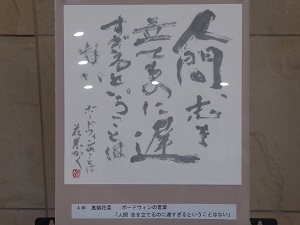 人間、志を
立てるのに遅
すぎるということは
ボードウィンのことば
花菜かく
ボードウィンの言葉
「人間 志を立てるのに遅すぎるということはない」